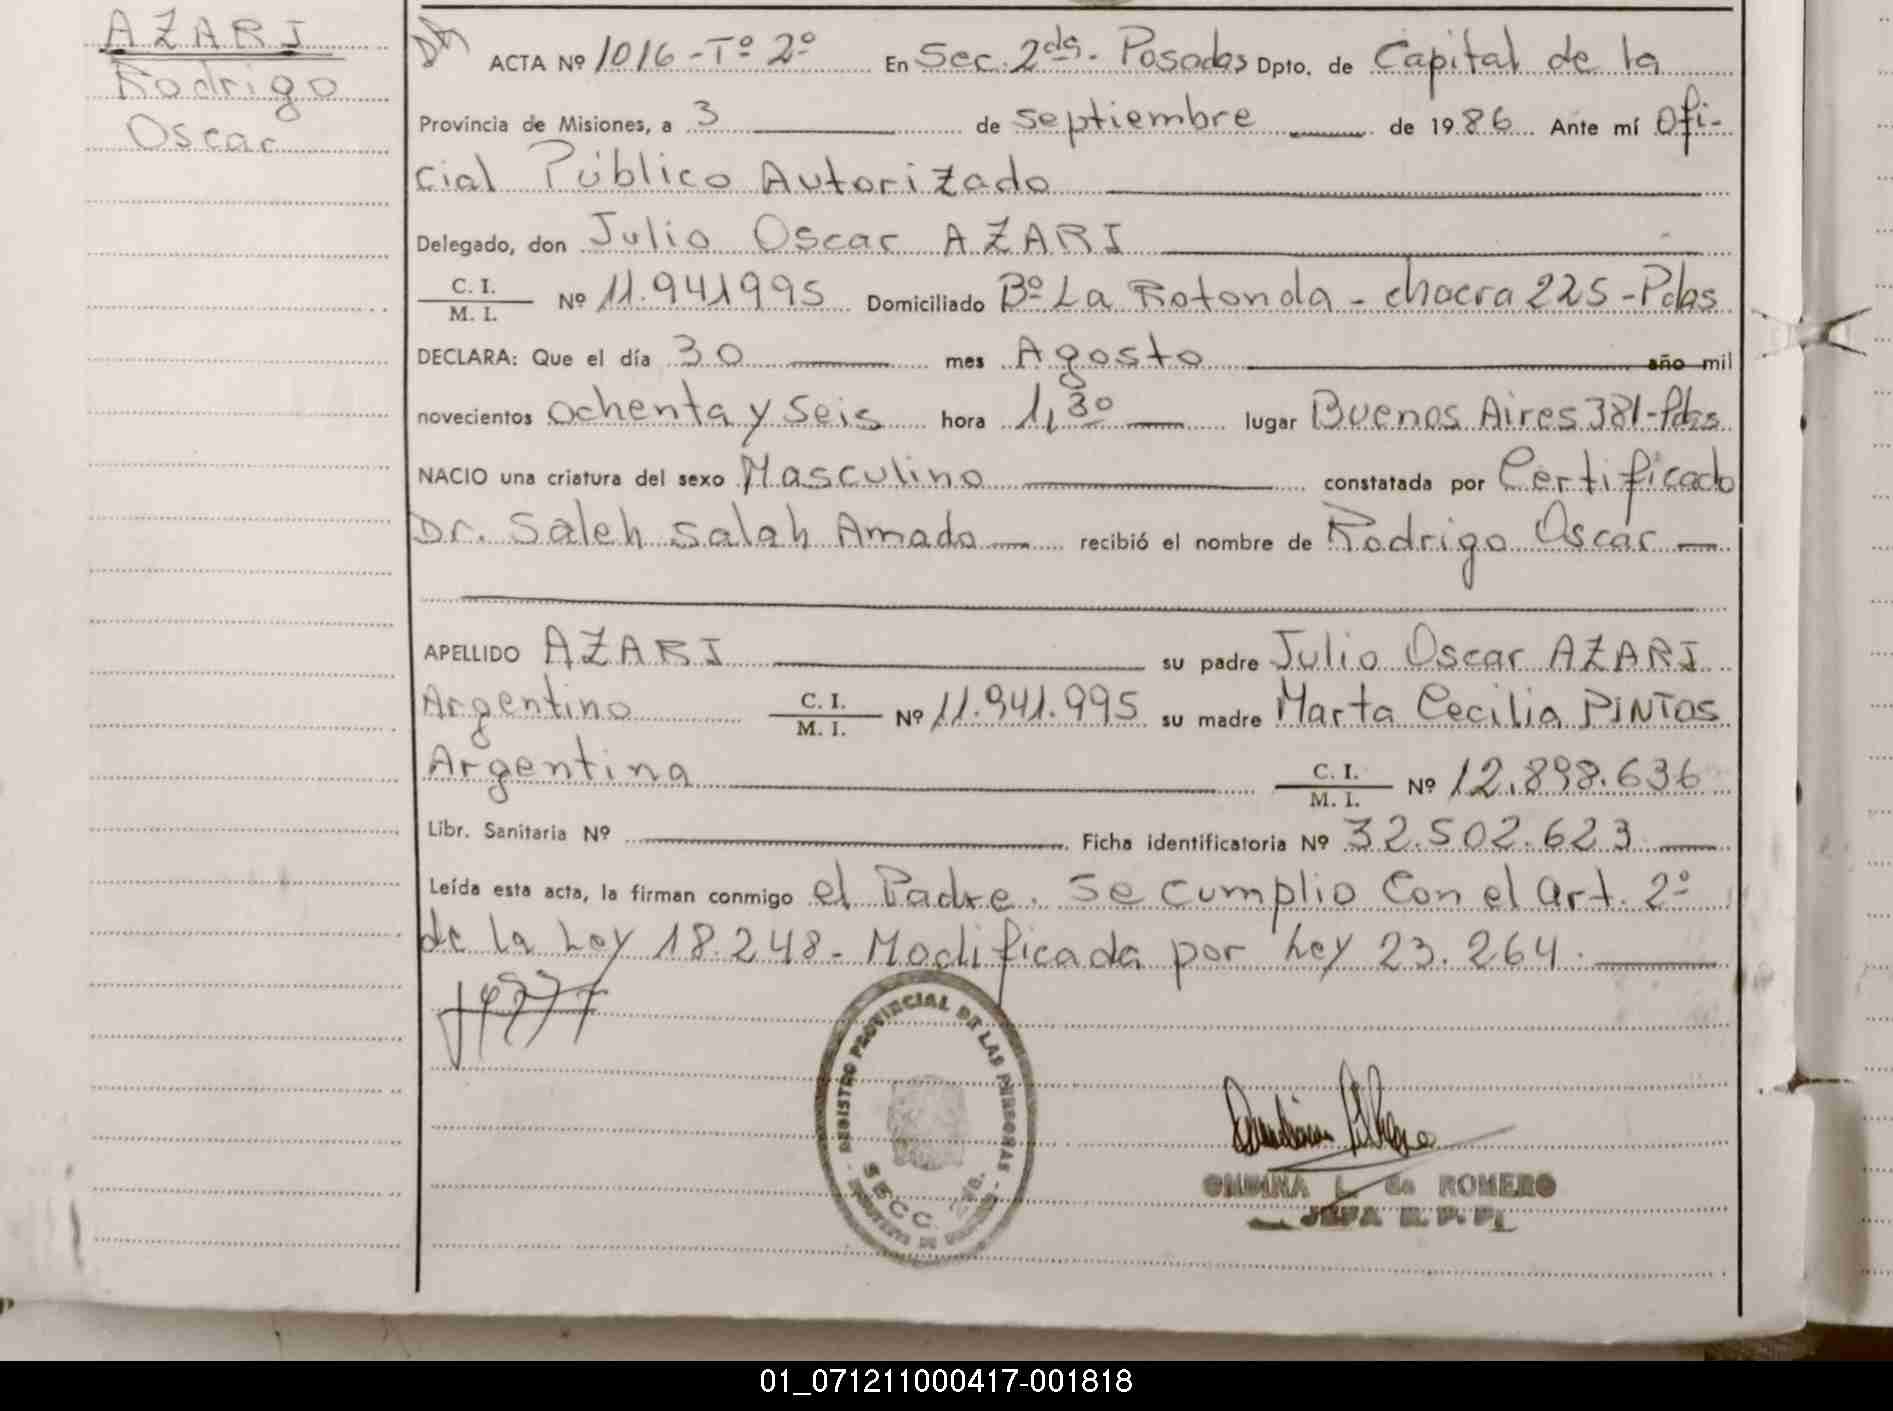 AZARI
Rodrigo
Oscar
ACTA Nº 1016 - Tº 2º En Sec. 2da. Posadas Dpto. de Capital de la
Provincia de Misiones, a 3 de septiembre de 1986 Ante mí Ofi-
cial Público Autorizado
Delegado, don Julio Oscar AZARI
C. I.
M. I. Nº 11.941995 Domiciliado Bº La Rotonda - chacra 225 - Pdas
DECLARA: Que el día 30 mes Agosto año mil
novecientos ochenta y seis hora 1,30 lugar Buenos Aires 381 - Pdas
NACIO una criatura del sexo Masculino constatada por Certificado
Dr. Saleh Salah Amado recibió el nombre de Rodrigo Oscar
APELLIDO AZARI su padre Julio Oscar AZARI
Argentino C. I.
M. I. Nº 11.941.995 su madre Marta Cecilia PINTOS
Argentina C. I.
M. I. Nº 12.898.636
Libr. Sanitaria Nº Ficha identificatoria Nº 32.502.623
Leída esta acta, la firman conmigo el Padre. Se cumplio Con el art. 2º
de la Ley 18.248 - Modificada por Ley 23.264.
REGISTRO PROVINCIAL DE LAS PERSONAS
SECC. 2da.
L. de ROMERO
JEFA R. P. P.
01_071211000417-001818